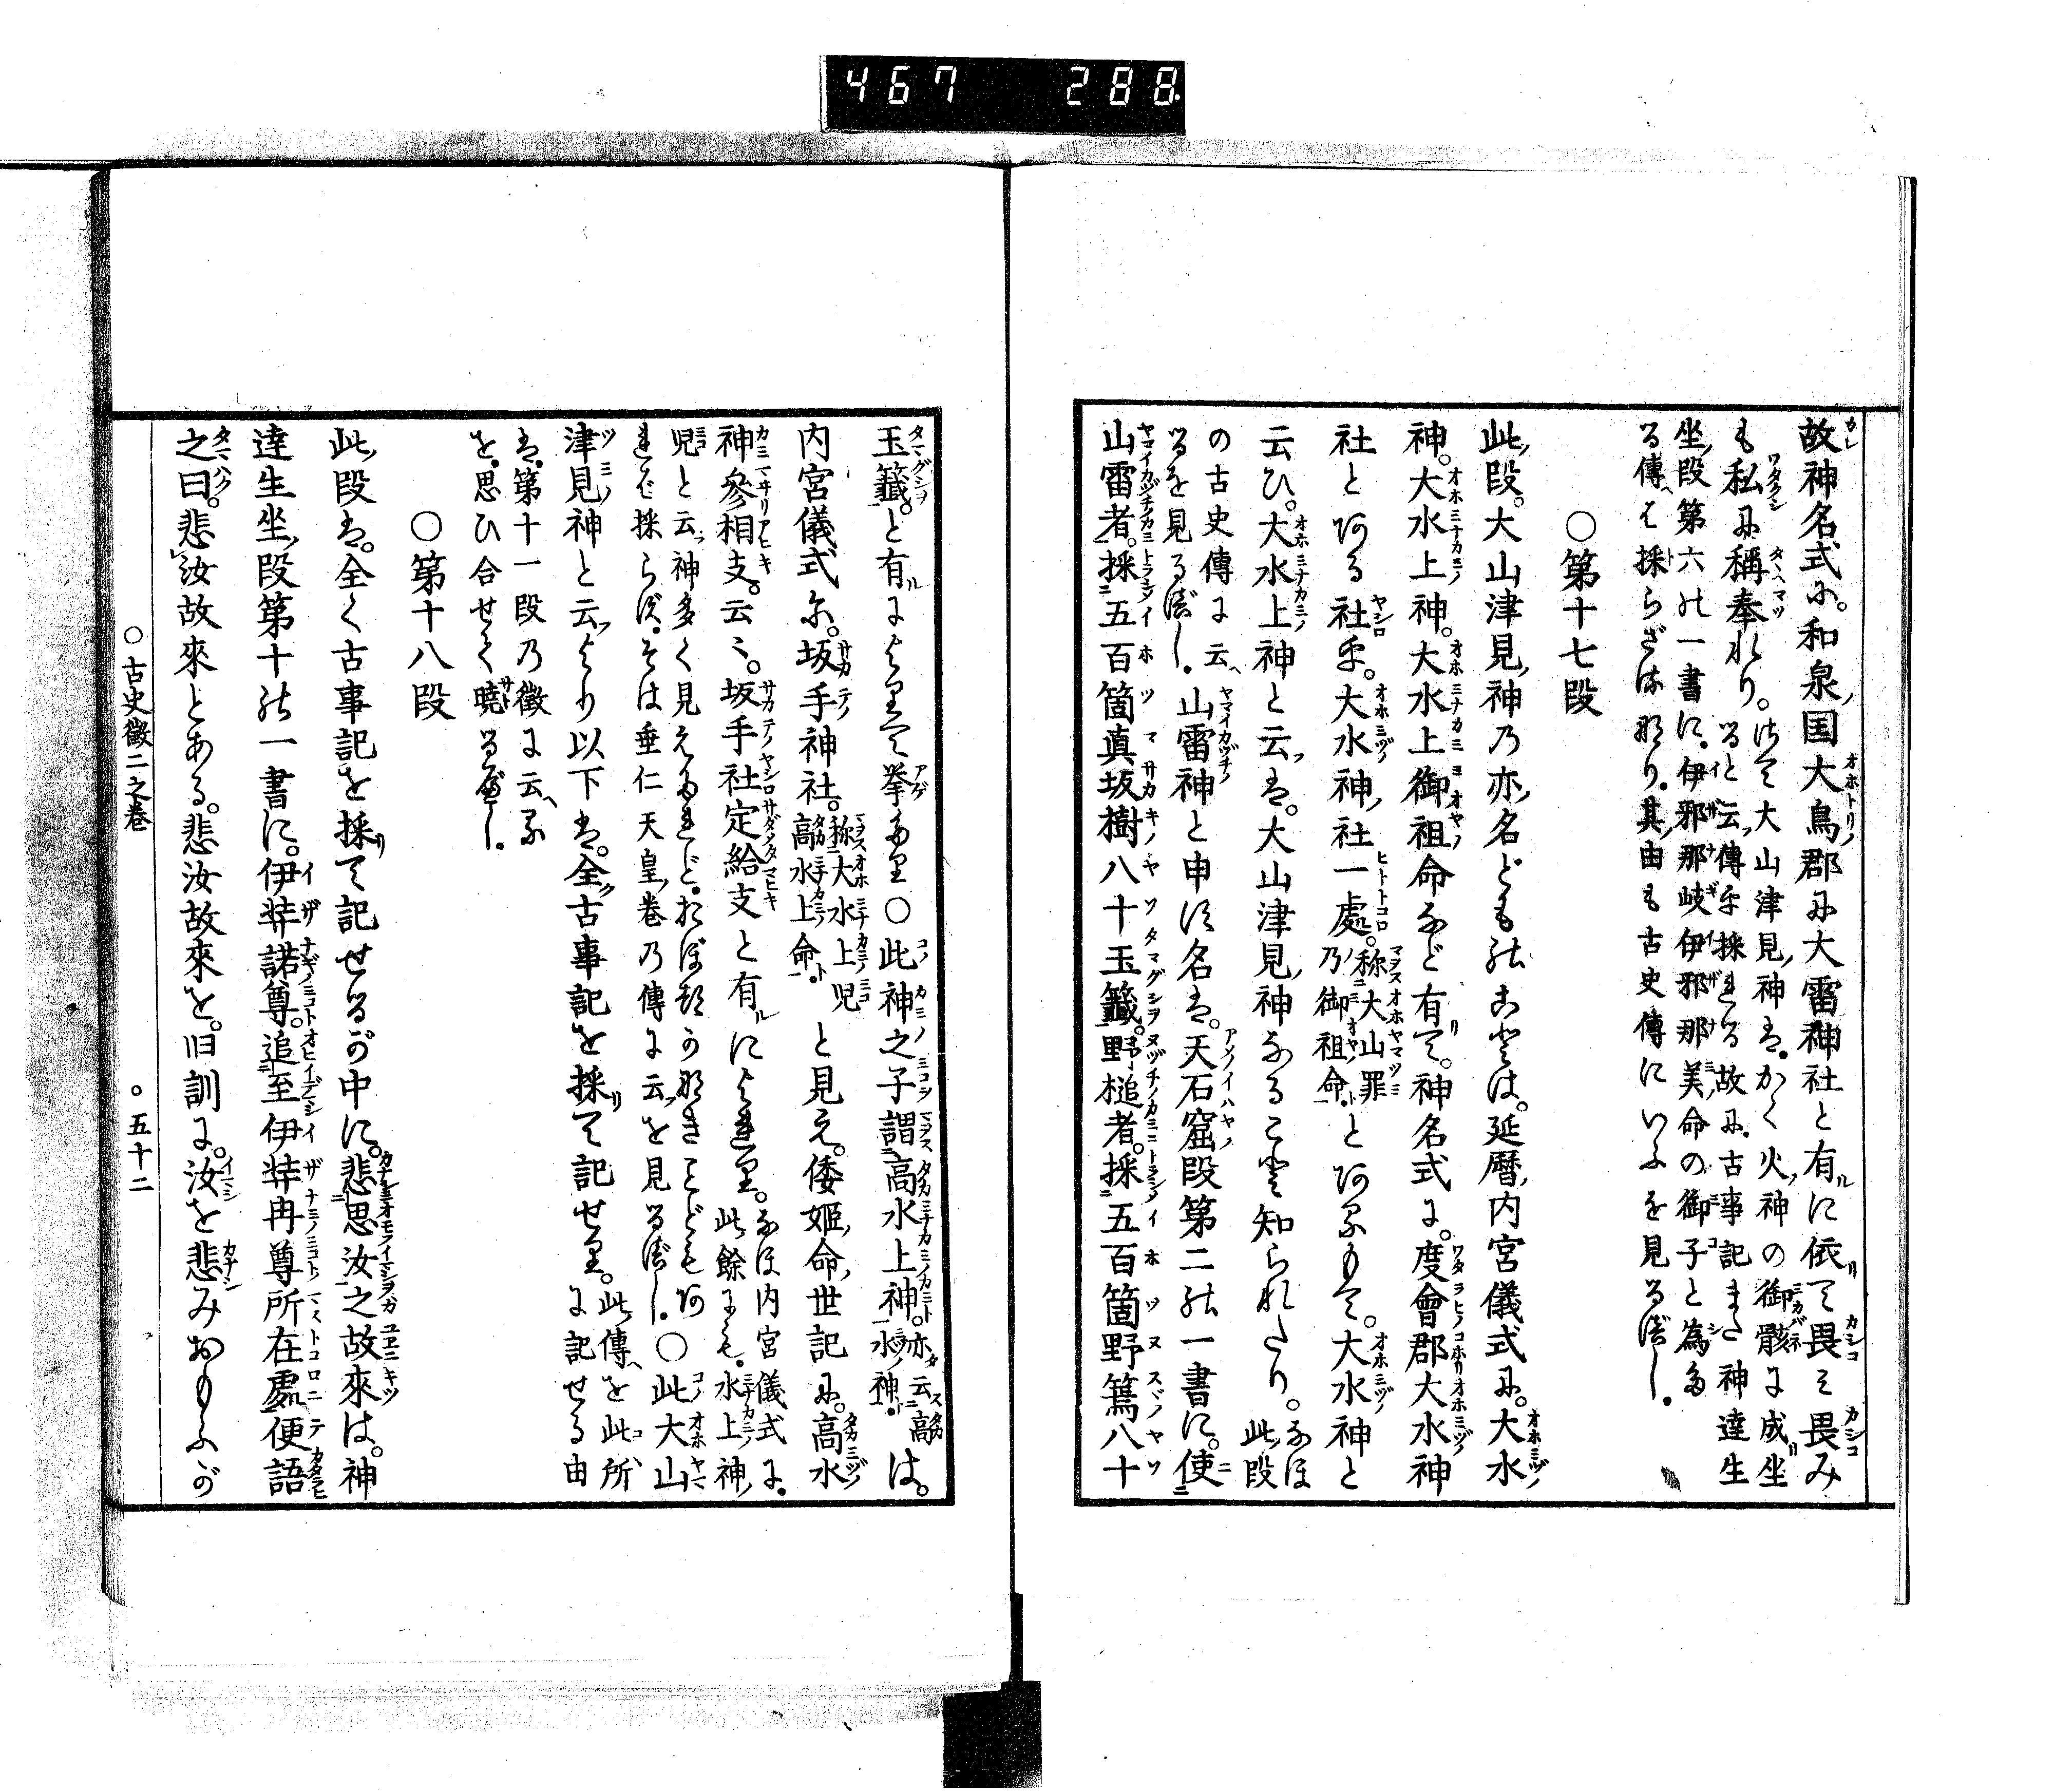 467 288
故神名式に。和泉国大鳥郡に大雷神社と有に依て畏さ畏み
も私に稱奉れり。さて大山津見神は。かく火神の御骸に成坐
ると云傳を採れる故に。古事記また神達生
坐段第六の一書に。伊邪那岐伊邪那美命の御子と為た
る傳へは採らざるなり。其由も古史傳にいふを見るべし。
○第十七段
此段。大山津見神乃亦名どものことは。延暦内宮儀式に。大水
神。大水上神。大水上御祖命など有て。神名式に。度會郡大水神
社とある社を。大水神社一處。称大山罪乃御祖命。とあるもて。大水神と
云ひ。大水上神と云は。大山津見神なること知られたり。なほ此段
の古史傳に云へるを見るべし。山雷神と申す名は。天石窟段第二の一書に。使
山雷者。採五百箇真坂樹八十玉籤。野槌者。採五百箇野篶八十
玉籤。と有によりて挙たり○此神之子謂高水上神。亦云高水神。は。
内宮儀式に。坂手神社。称大水上児高水上命。と見え。倭姫命世記に。高水
神參相支。云々。坂手社定給支と有によれり。なほ内宮儀式に。此餘にも。水上神
児と云神多く見えたれど。おぼつかなきことどもあれば採らず。そは垂仁天皇巻乃傳に云を見るべし。○此大山
津見神と云より以下は。全古事記を採て記せり。此傳を此所に記せる由
は。第十一段乃徴に云へるを。思ひ合せて曉るべし。
○第十八段
此段は。全く古事記を採て記せるが中に。悲思汝之故來は。神
達生坐段第十の一書に。伊弉諾尊。追至伊弉冉尊所在處便語
之曰。悲汝故來とある。悲汝故來を。旧訓に。汝を悲みおもふが
○古史徴二之巻
○五十二